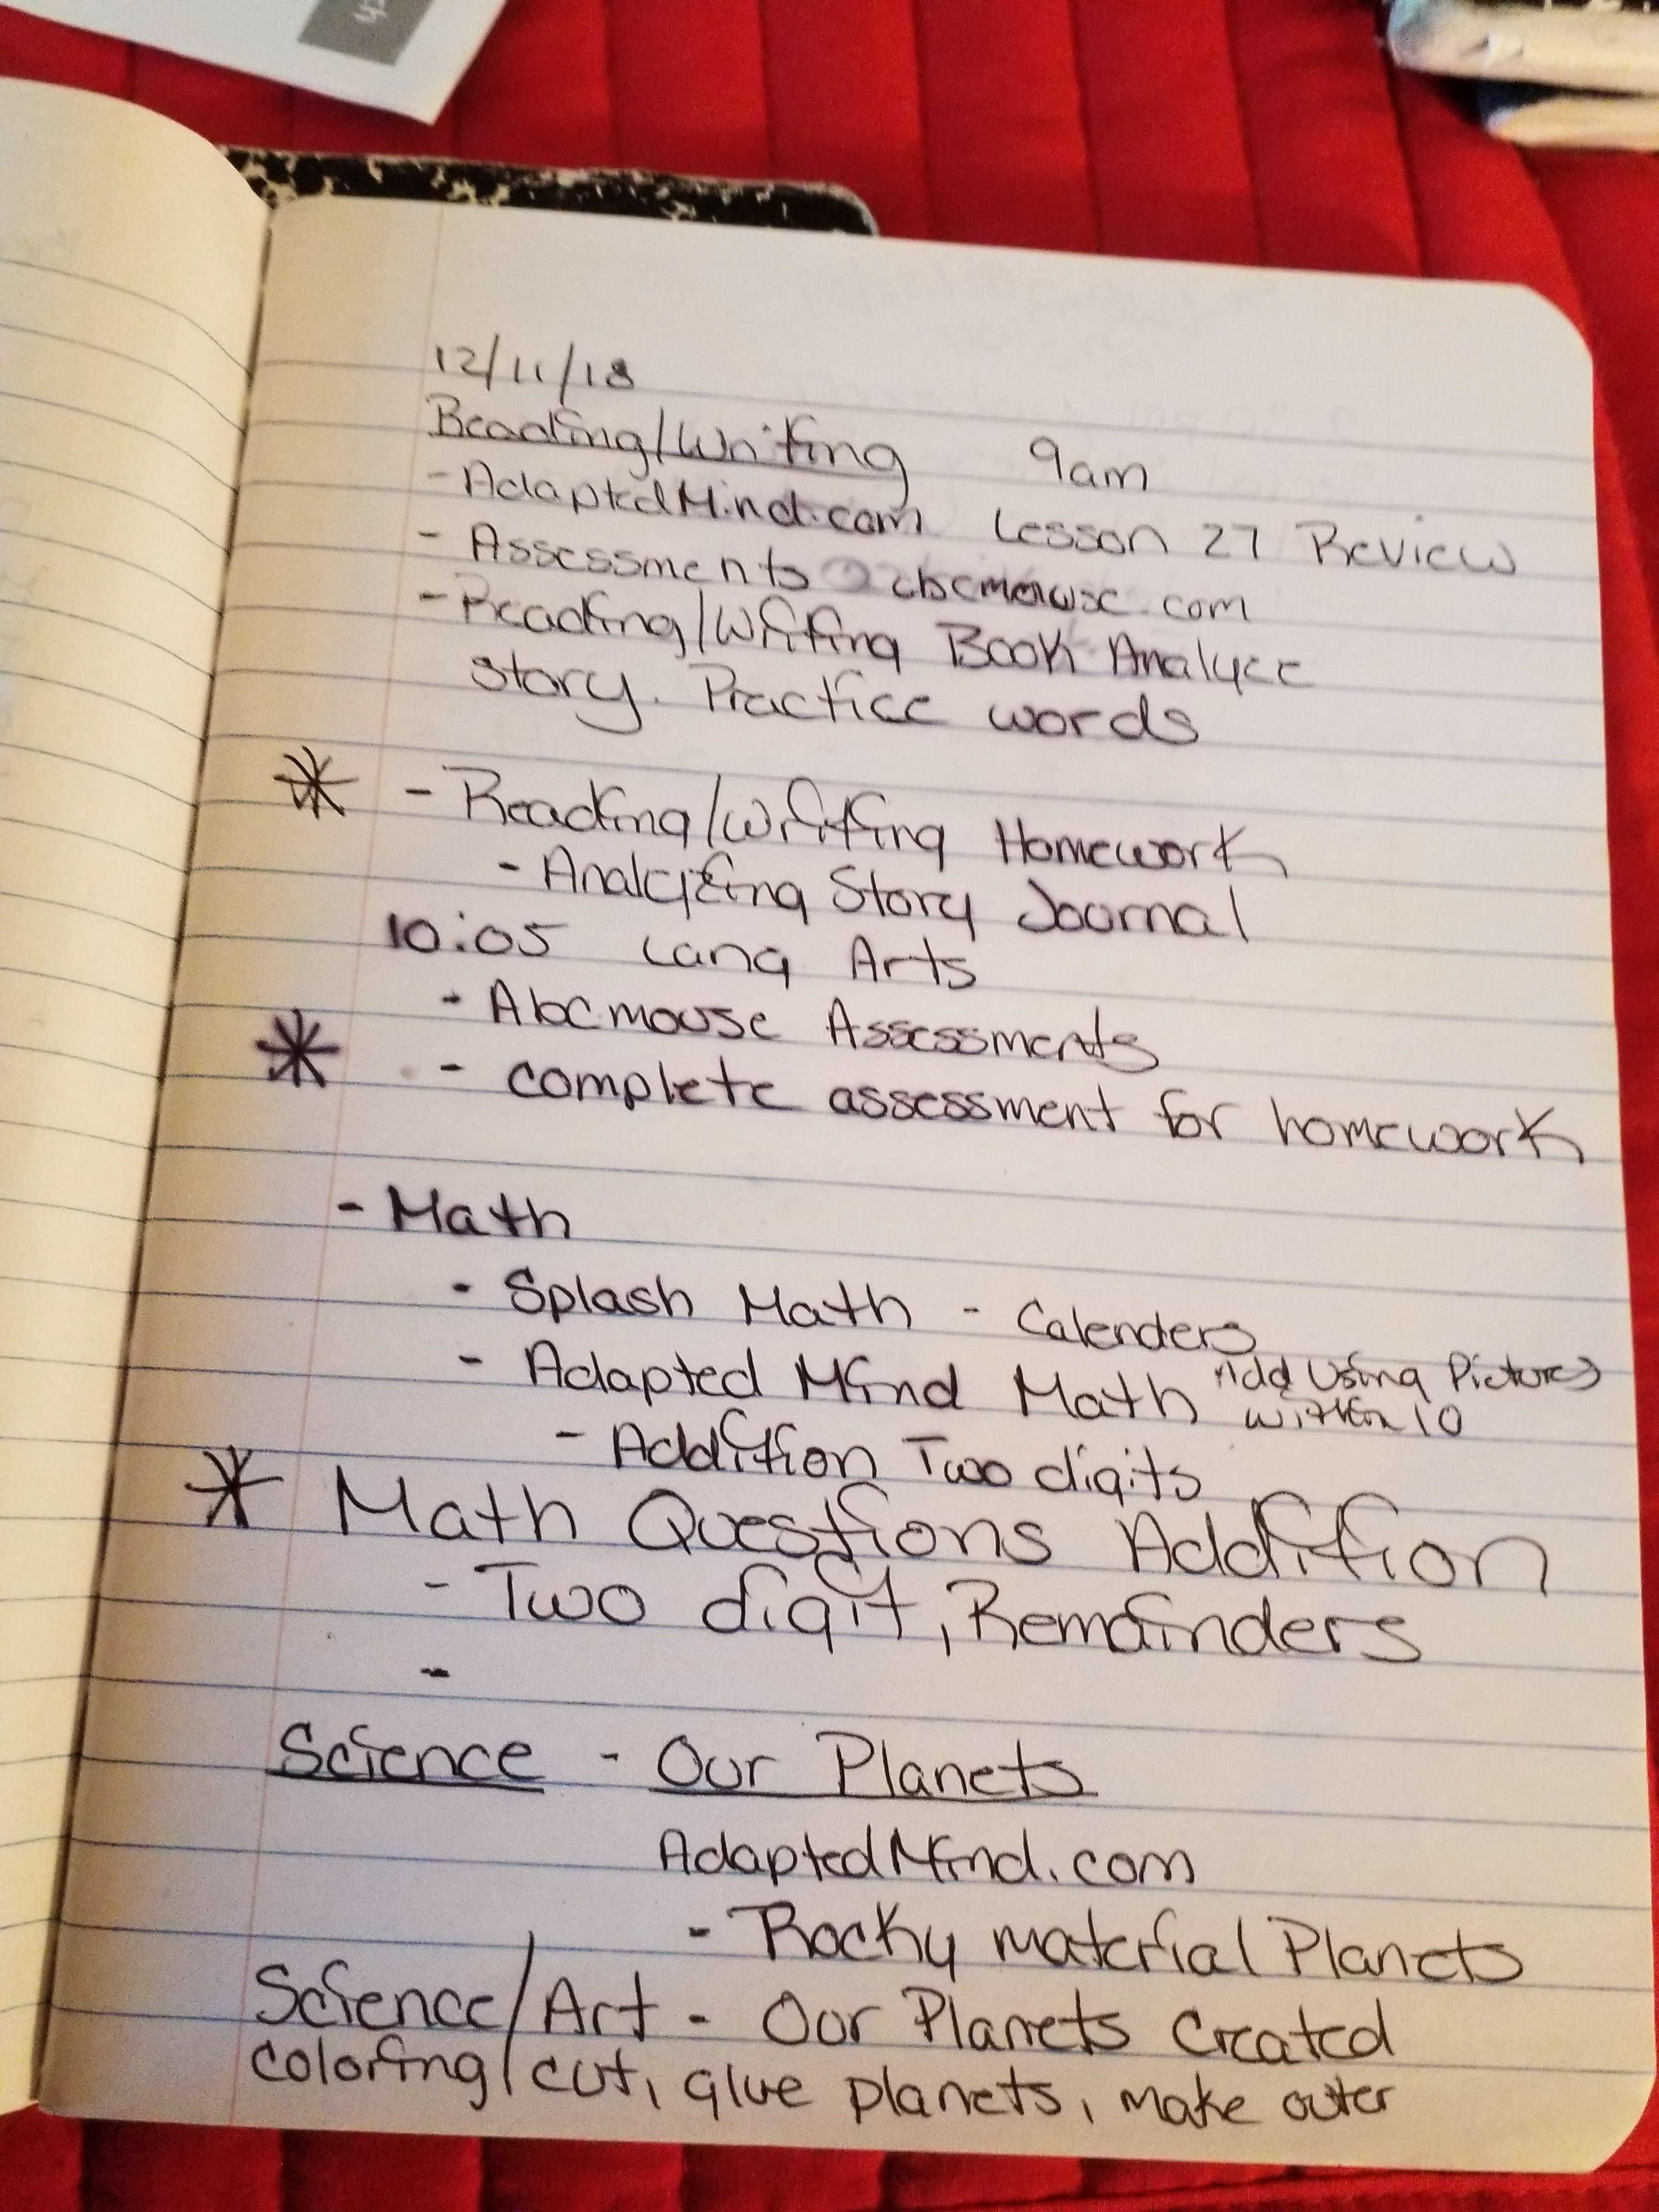 12/11/18
Reading/Writing 9am
- AdaptedMind.com Lesson 27 Review
- Assessments abcmouse.com
- Reading/Writing Book Analyze
story. Practice words
* - Reading/Writing Homework
- Analyzing Story Journal
10:05 Lang Arts
- Abcmouse Assessments
* - complete assessment for homework
- Math
- Splash Math - Calenders
- Adapted Mind Math Add Using Pictures
within 10
- Addition Two digits
* Math Questions Addition
- Two digit, Remainders
-
Science - Our Planets
AdaptedMind.com
- Rocky material Planets
Science/Art - Our Planets Created
coloring/cut, glue planets, make outer